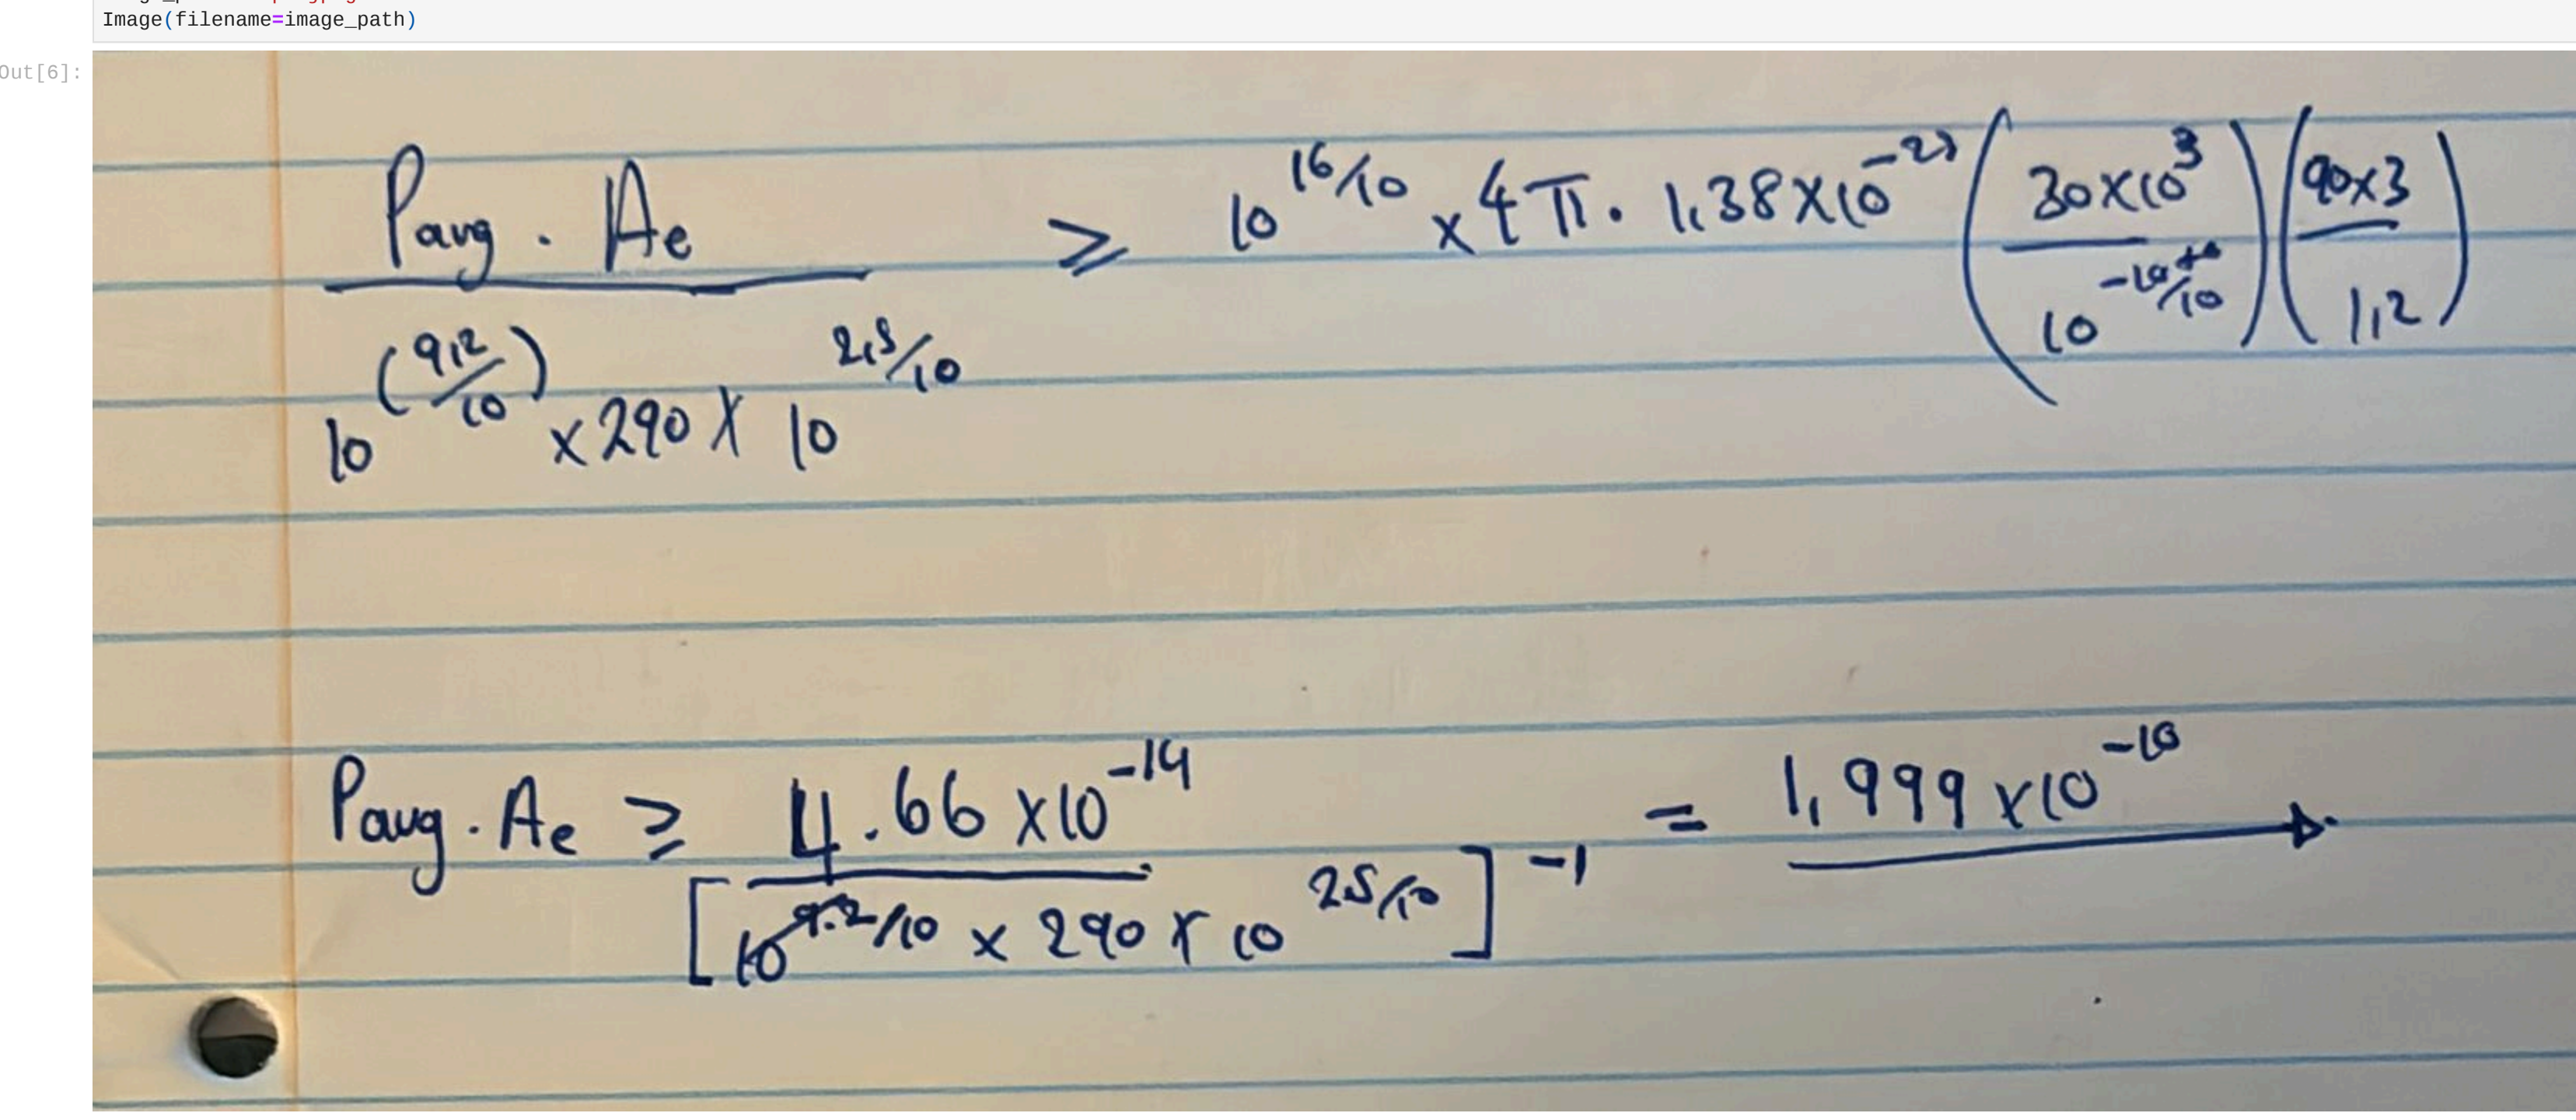 Image(filename=image_path)
Out[6]:
Pavg . Ae / (10^(9,2/10) x 290 x 10^(2,5/10)) ≥ 10^(16/10) x 4π . 1,38x10^-23 (30x10^3 / 10^(-10/10)) (90x3 / 1,2)
Pavg . Ae ≥ 4.66 x10^-14 / [10^(9.2/10) x 290 x 10^(25/10)]^-1 = 1,999 x10^-10